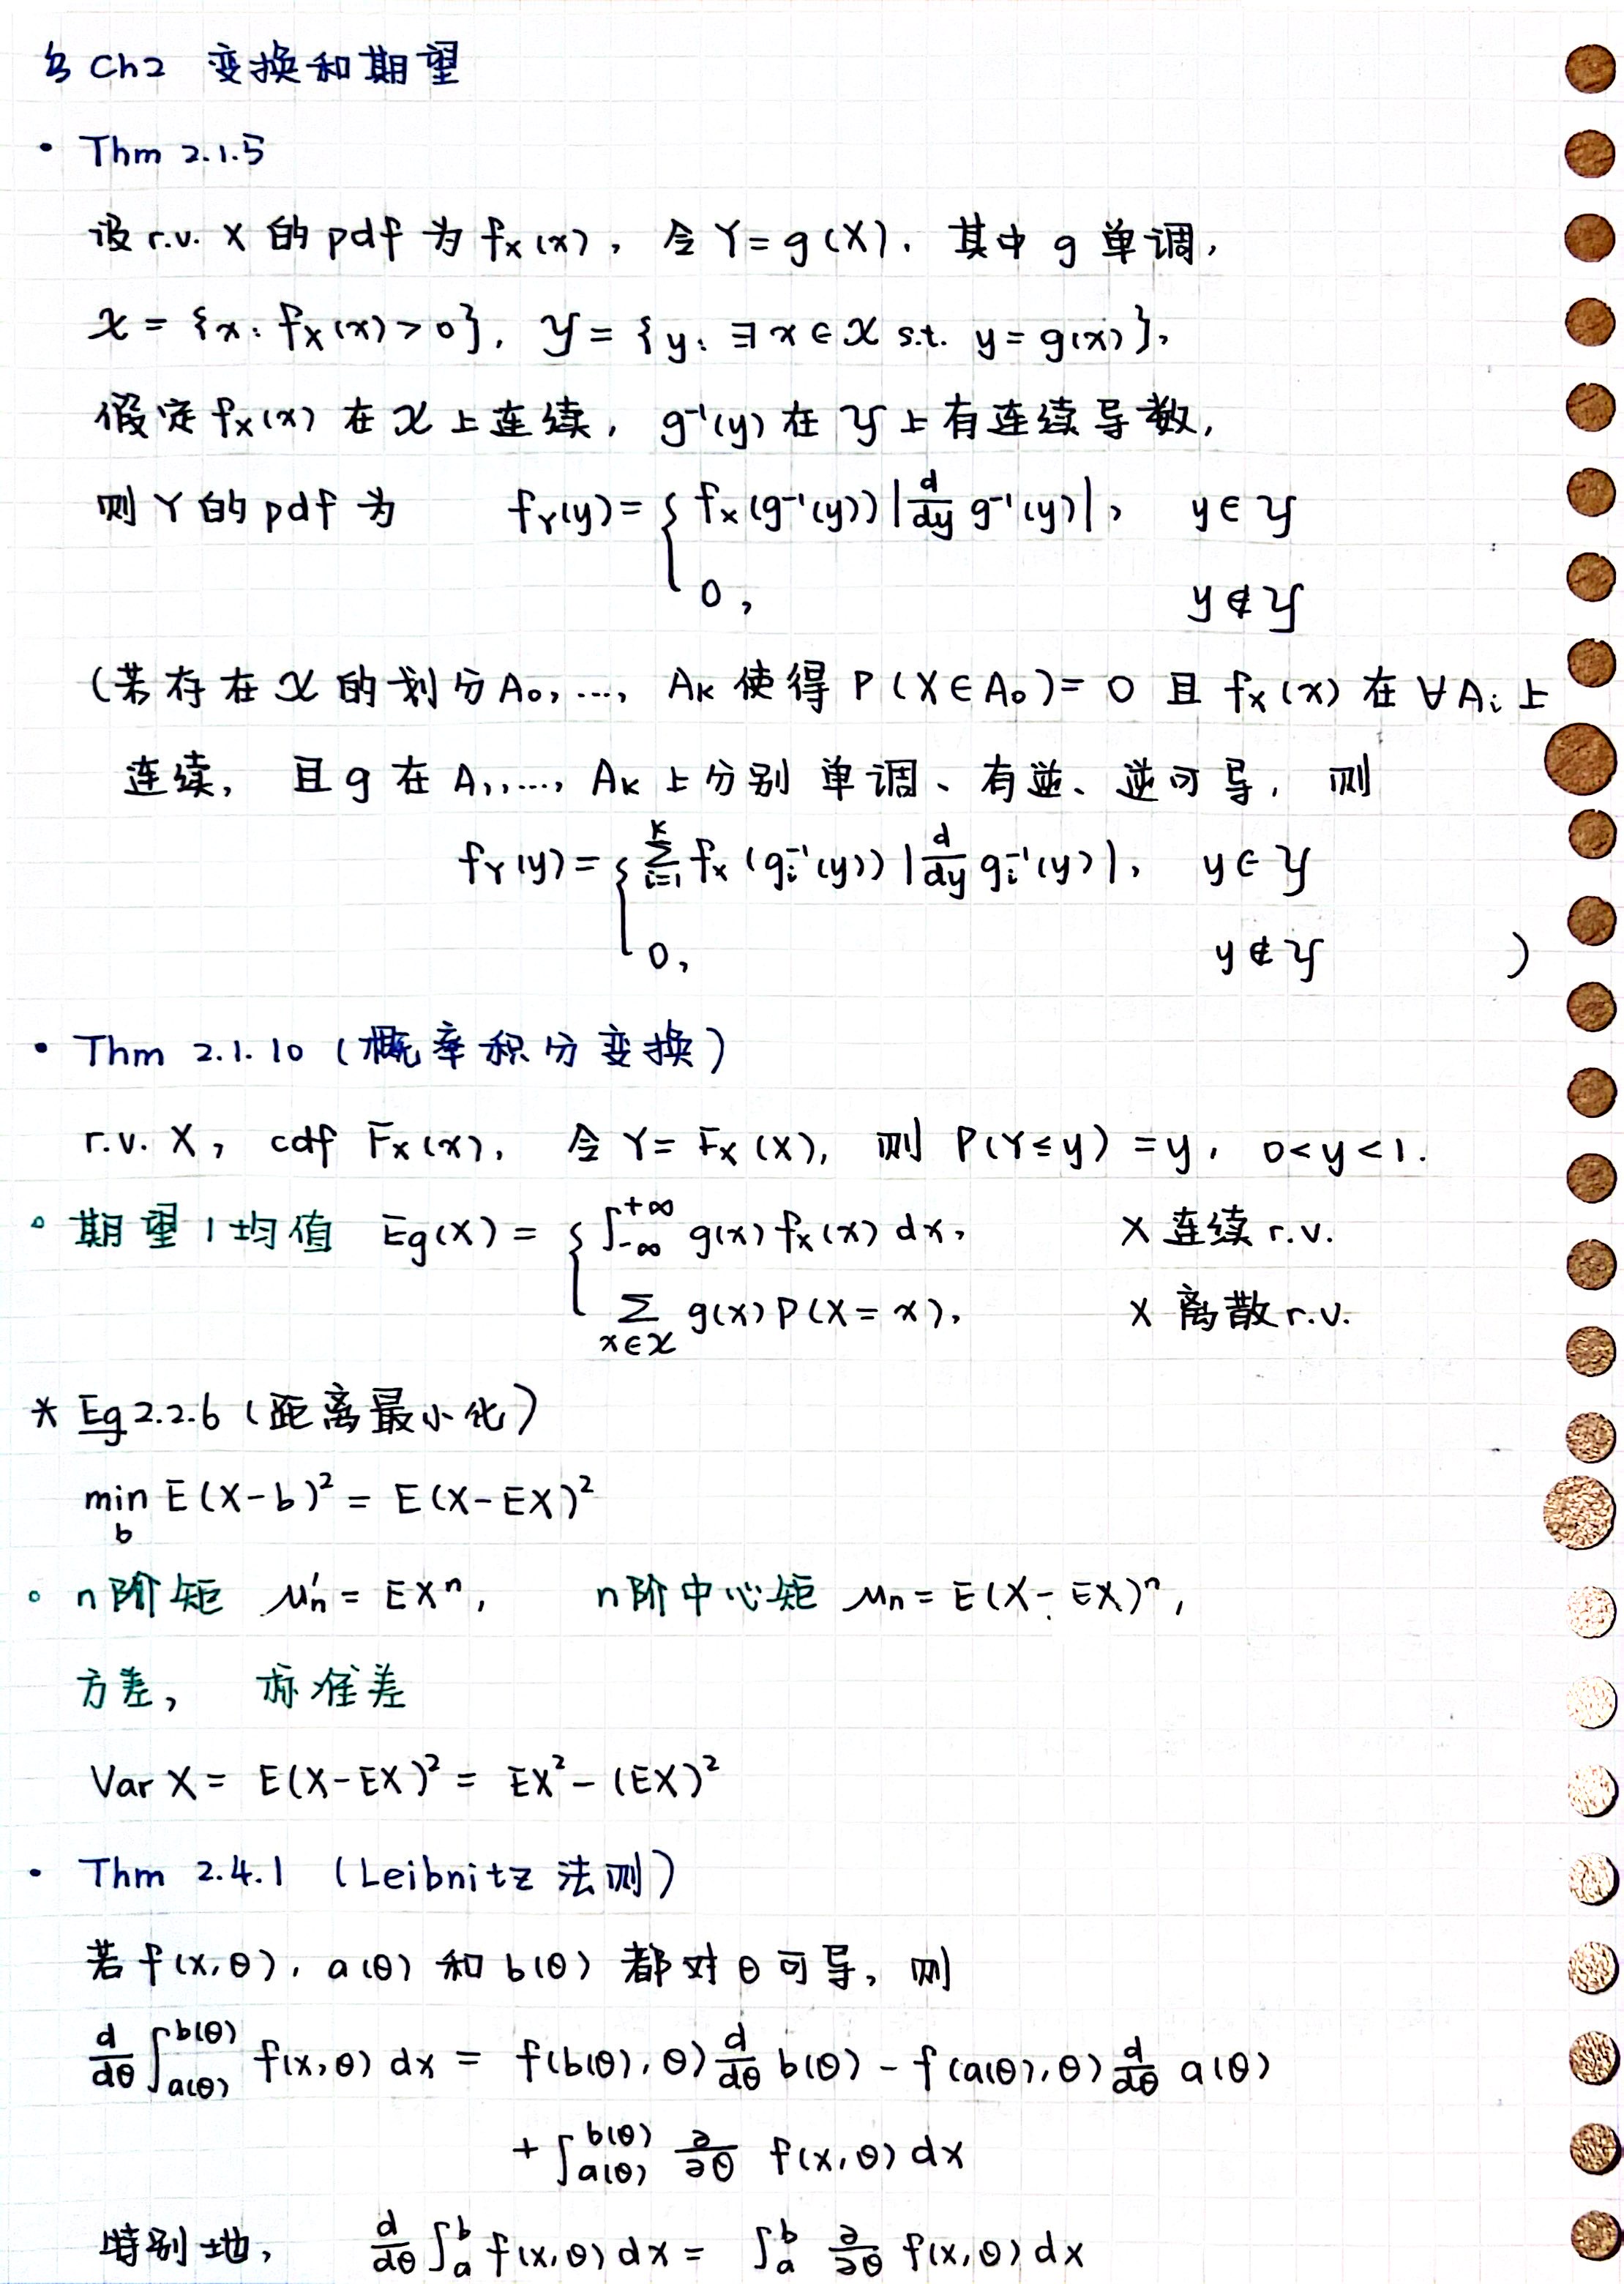 § Ch2 变换和期望
• Thm 2.1.5
设 r.v. X 的 pdf 为 f_X(x), 令 Y = g(X). 其中 g 单调,
𝒳 = {x: f_X(x) > 0}, 𝒴 = {y: ∃ x ∈ 𝒳 s.t. y = g(x)},
假定 f_X(x) 在 𝒳 上连续, g⁻¹(y) 在 𝒴 上有连续导数,
则 Y 的 pdf 为 f_Y(y) = { f_X(g⁻¹(y)) |d/dy g⁻¹(y)|, y ∈ 𝒴
0, y ∉ 𝒴
(若存在 𝒳 的划分 A₀, ..., A_k 使得 P(X ∈ A₀) = 0 且 f_X(x) 在 ∀A_i 上
连续, 且 g 在 A₁, ..., A_k 上分别 单调、有逆、逆可导, 则
f_Y(y) = { Σ_{i=1}^{k} f_X(g_i⁻¹(y)) |d/dy g_i⁻¹(y)|, y ∈ 𝒴
0, y ∉ 𝒴 )
• Thm 2.1.10 (概率积分变换)
r.v. X, cdf F_X(x), 令 Y = F_X(X), 则 P(Y ≤ y) = y, 0 < y < 1.
∘ 期望 / 均值 Eg(X) = { ∫_{-∞}^{+∞} g(x) f_X(x) dx, X 连续 r.v.
Σ_{x∈𝒳} g(x) P(X = x), X 离散 r.v.
* Eg 2.2.6 (距离最小化)
min_b E(X-b)² = E(X-EX)²
∘ n阶矩 μ'_n = EXⁿ, n阶中心矩 μ_n = E(X-EX)ⁿ,
方差, 标准差
Var X = E(X-EX)² = EX² - (EX)²
• Thm 2.4.1 (Leibnitz 法则)
若 f(x,θ), a(θ) 和 b(θ) 都对 θ 可导, 则
d/dθ ∫_{a(θ)}^{b(θ)} f(x,θ) dx = f(b(θ),θ) d/dθ b(θ) - f(a(θ),θ) d/dθ a(θ)
+ ∫_{a(θ)}^{b(θ)} ∂/∂θ f(x,θ) dx
特别地, d/dθ ∫_a^b f(x,θ) dx = ∫_a^b ∂/∂θ f(x,θ) dx